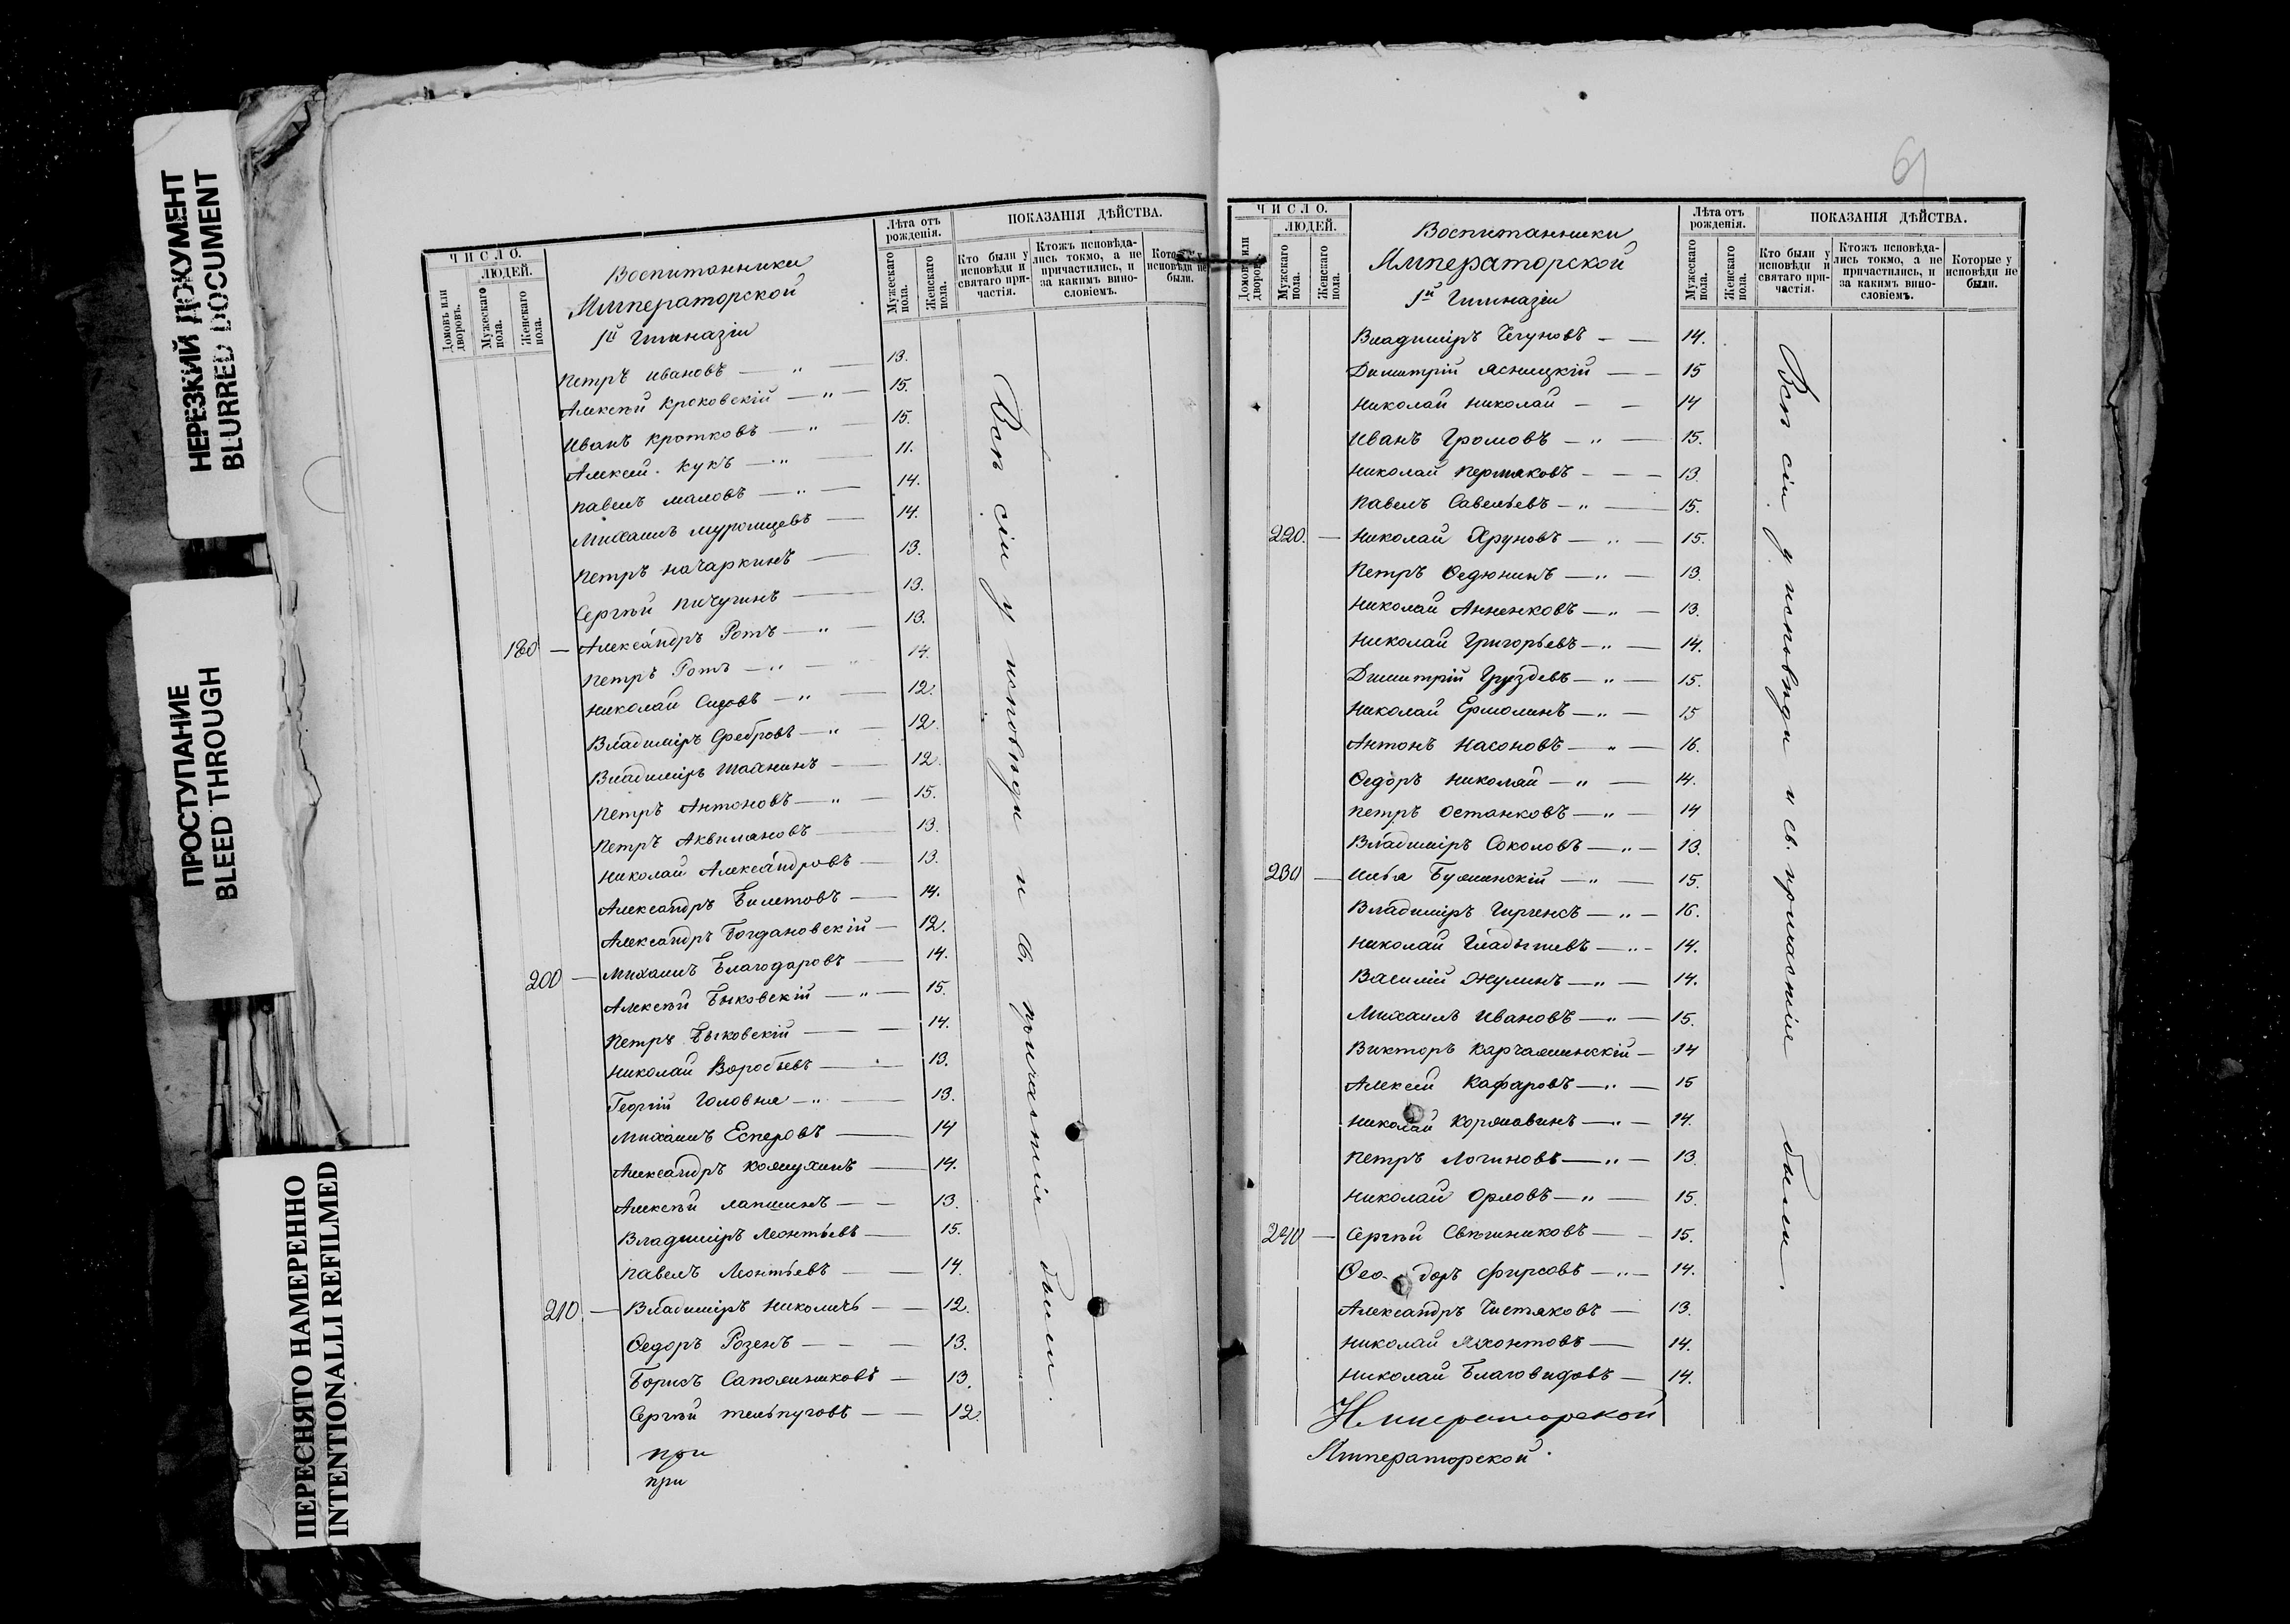 НЕРЕЗКИЙ ДОКУМЕНТ
BLURRED DOCUMENT
ПРОСТУПАНИЕ
BLEED THROUGH
ПЕРЕСНЯТО НАМЕРЕННО
INTENTIONALLI REFILMED
ЧИСЛО.
ЛЮДЕЙ.
Домовъ или дворовъ.
Мужескаго пола.
Женскаго пола.
Воспитанники
Императорской
1й Гимназіи
Лѣта отъ рожденія.
Мужескаго пола.
Женскаго пола.
ПОКАЗАНІЯ ДѢЙСТВА.
Кто были у исповѣди и святаго причастія.
Ктожъ исповѣдались токмо, а не причастились, и за какимъ винословіемъ.
Которые у исповѣди не были.
Петръ Ивановъ — „ — 13.
Алексѣй Кроковскій — „ — 15.
Иванъ Кротковъ — „ — 15.
Алексѣй Кукъ — „ — 11.
Павелъ Маловъ — „ — 14.
Михаилъ Муромцевъ — 14.
Петръ Начаркинъ — 13.
Сергѣй Пичугинъ — 13.
190 — Александръ Ротъ — „ — 13.
Петръ Ротъ — „ — 14.
Николай Сизовъ — „ — 12.
Владиміръ Сребровъ — „ — 12.
Владиміръ Шайнинъ — 12.
Петръ Антоновъ — „ — 15.
Петръ Аквилановъ — 13.
Николай Александровъ — 13.
Александръ Билетовъ — 14.
Александръ Богдановскій — 12.
200 — Михаилъ Благодаровъ — 14.
Алексѣй Быковскій — „ — 15.
Петръ Быковскій — — 14.
Николай Воробьевъ — 13.
Георгій Головня — „ — 13.
Михаилъ Есперовъ — 14
Александръ — 14.
Алексѣй Лапшинъ — — 13.
Владиміръ Леонтьевъ — 15.
Павелъ Леонтьевъ — — 14.
210. — Владиміръ Николичъ — — 12.
Ѳедоръ Розенъ — — — 13.
Борисъ Сапожниковъ — 13.
Сергѣй Тельпуговъ — — 12.
Всѣ сіи у исповѣди и св. причастія были.
при
при
69
ЧИСЛО.
ЛЮДЕЙ.
Домовъ или дворовъ.
Мужескаго пола.
Женскаго пола.
Воспитанники
Императорской
1й Гимназіи
Лѣта отъ рожденія.
Мужескаго пола.
Женскаго пола.
ПОКАЗАНІЯ ДѢЙСТВА.
Кто были у исповѣди и святаго причастія.
Ктожъ исповѣдались токмо, а не причастились, и за какимъ винословіемъ.
Которые у исповѣди не были.
Владиміръ Чегуновъ — — 14.
Димитрій Ясницкій — — 15
Николай Николай — — 14
Иванъ Громовъ — „ — 15.
Николай Пермяковъ — — — 13.
Павелъ Савельевъ — „ — 15.
220. — Николай Хруновъ — „ — 15.
Петръ Ѳедюнинъ — „ — 13.
Николай Анненковъ — „ — 13.
Николай Григорьевъ — „ — 14.
Димитрій Груздевъ — „ — 15.
Николай Ермолинъ — „ — 15
Антонъ Насоновъ — „ — 16.
Ѳедоръ Николай — „ — 14.
Петръ Останковъ — „ — 14
Владиміръ Соколовъ — „ — 13.
230 — Илья — „ — 15.
Владиміръ Гиргенсъ — „ — 16.
Николай Гладышевъ — „ — 14.
Василій Жулинъ — „ — 14.
Михаилъ Ивановъ — „ — 15.
Викторъ — 14
Алексѣй Кафаровъ — „ — 15
Николай Коржавинъ — „ — 14.
Петръ Логиновъ — „ — 13.
Николай Орловъ — „ — 15.
240 — Сергѣй Свѣшниковъ — — 15.
Ѳеодоръ Фирсовъ — „ — 14.
Александръ Чистяковъ — 13.
Николай Яхонтовъ — 14.
Николай Благовидовъ — 14.
Всѣ сіи у исповѣди и св. причастія были.
Императорской
Императорской